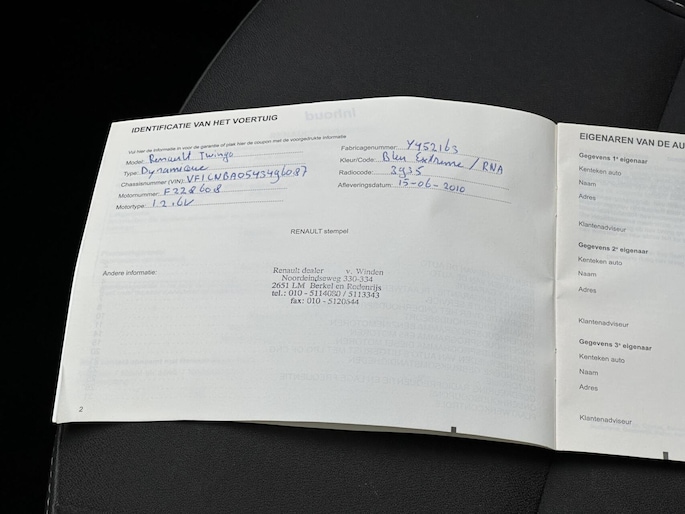 Inhoud
IDENTIFICATIE VAN HET VOERTUIG
Vul hier de informatie in voor de garantie of plak hier de coupon met de voorgedrukte informatie
Model: Renault Twingo
Type: Dynamique
Chassisnummer (VIN): VF1CNBA0543496087
Motornummer: F228608
Motortype: 1.2.16V
Fabricagenummer: Y452163
Kleur/Code: Bleu Extreme / RNA
Radiocode: 3935
Afleveringsdatum: 15-06-2010
RENAULT stempel
Andere informatie:
Renault dealer v. Winden
Noordeindseweg 330-334
2651 LM Berkel en Rodenrijs
tel.: 010 - 5114030 / 5113343
fax: 010 - 5120544
2
EIGENAREN VAN DE AU
Gegevens 1e eigenaar
Kenteken auto
Naam
Adres
Klantenadviseur
Gegevens 2e eigenaar
Kenteken auto
Naam
Adres
Klantenadviseur
Gegevens 3e eigenaar
Kenteken auto
Naam
Adres
Klantenadviseur